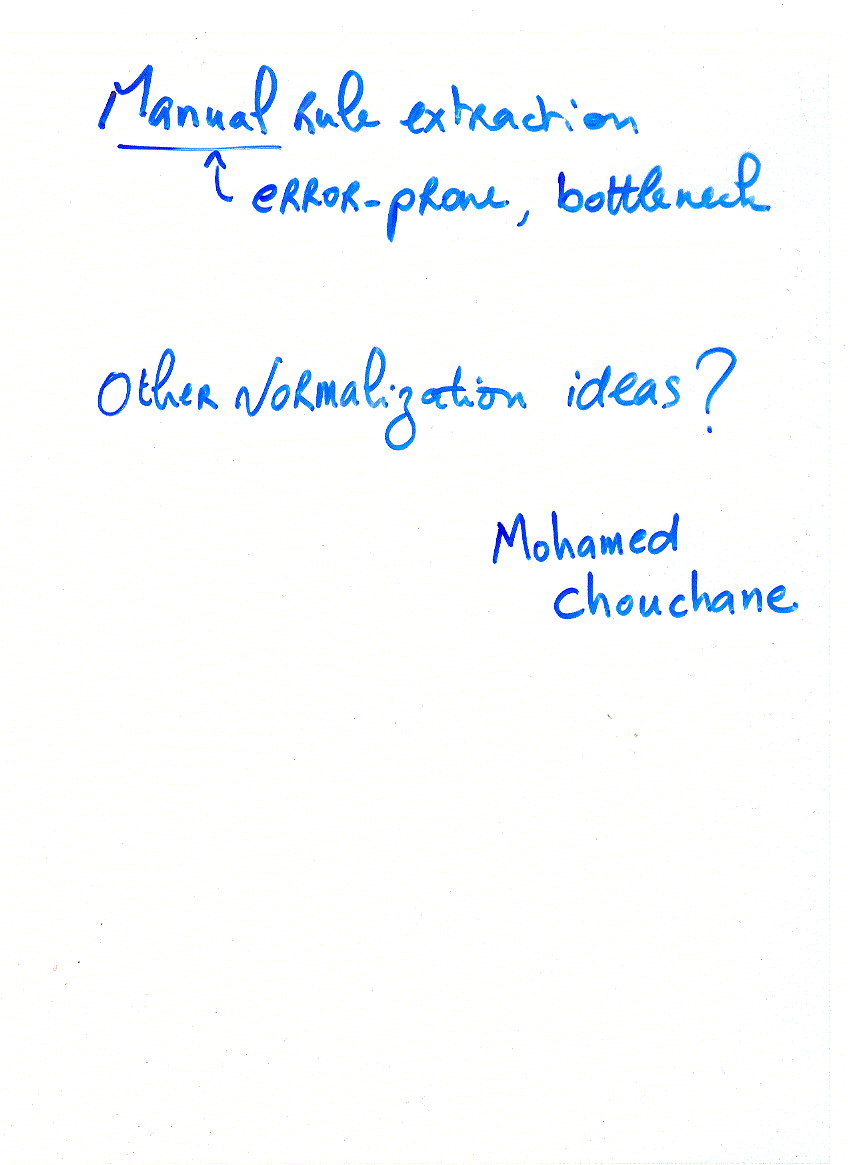 Manual rule extraction
error-prone, bottleneck
Other Normalization ideas?
Mohamed
Chouchane.